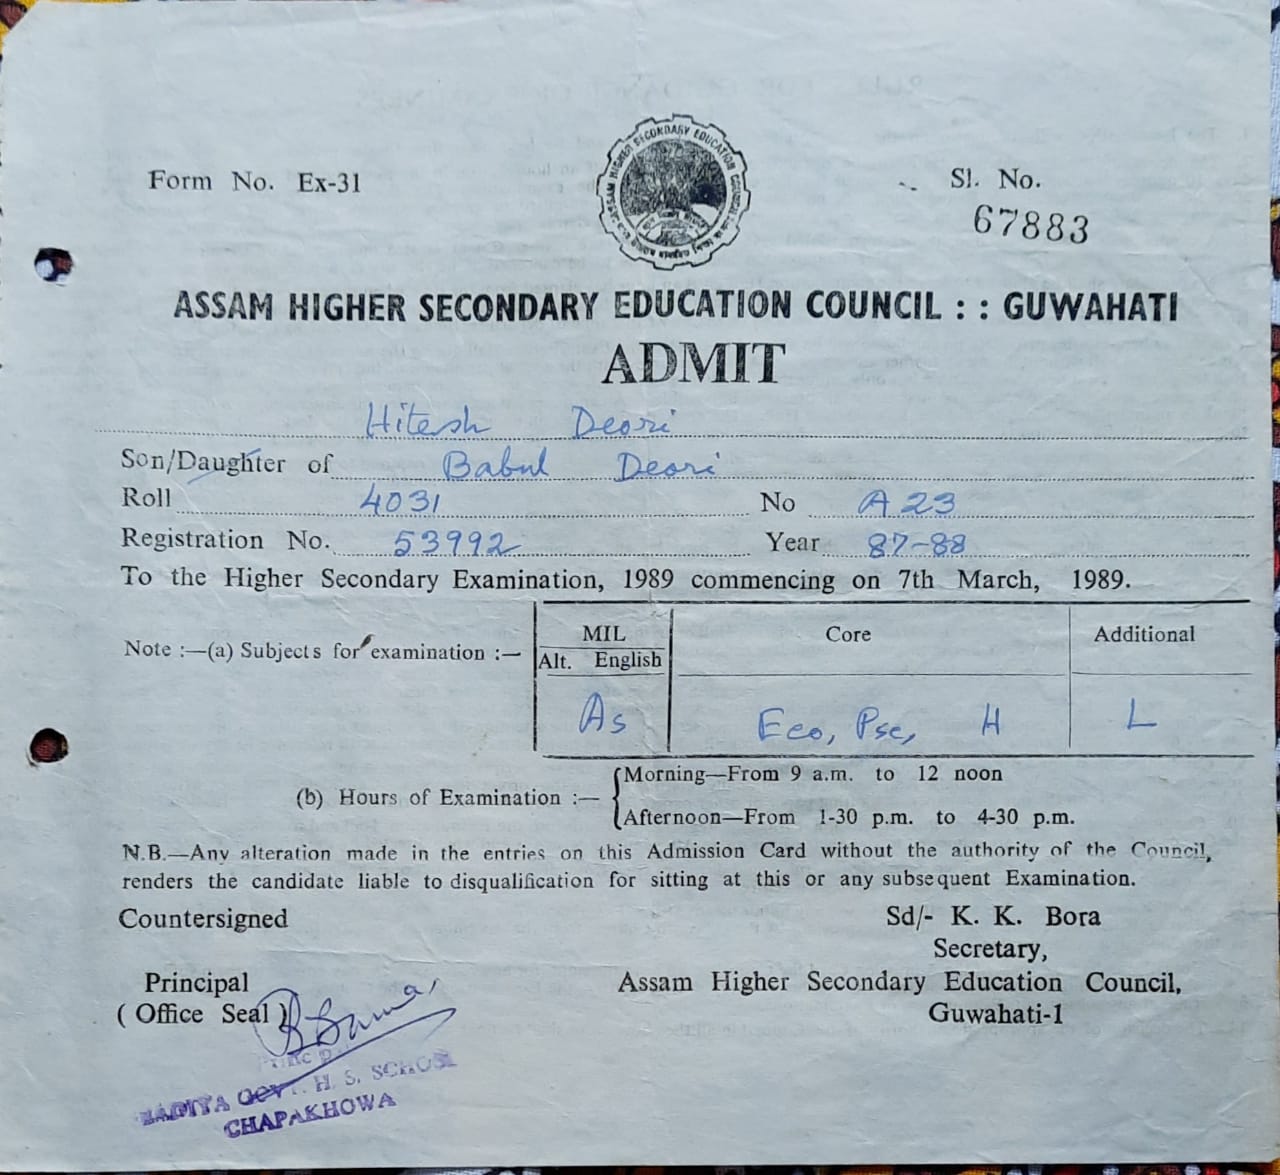 Form No. Ex-31
Sl. No.
67883
ASSAM HIGHER SECONDARY EDUCATION COUNCIL
ASSAM HIGHER SECONDARY EDUCATION COUNCIL : : GUWAHATI
ADMIT
Hitesh Deori
Son/Daughter of Babul Deori
Roll 4031 No A 23
Registration No. 53992 Year 87-88
To the Higher Secondary Examination, 1989 commencing on 7th March, 1989.
Note :—(a) Subjects for examination :—
MIL Core Additional
Alt. English
As Eco, Psc, H L
(b) Hours of Examination :— Morning—From 9 a.m. to 12 noon
Afternoon—From 1-30 p.m. to 4-30 p.m.
N.B.—Any alteration made in the entries on this Admission Card without the authority of the Council,
renders the candidate liable to disqualification for sitting at this or any subsequent Examination.
Countersigned
Sd/- K. K. Bora
Secretary,
Principal
Assam Higher Secondary Education Council,
( Office Seal )
Guwahati-1
GOVT. H. S. SCHOOL
CHAPAKHOWA